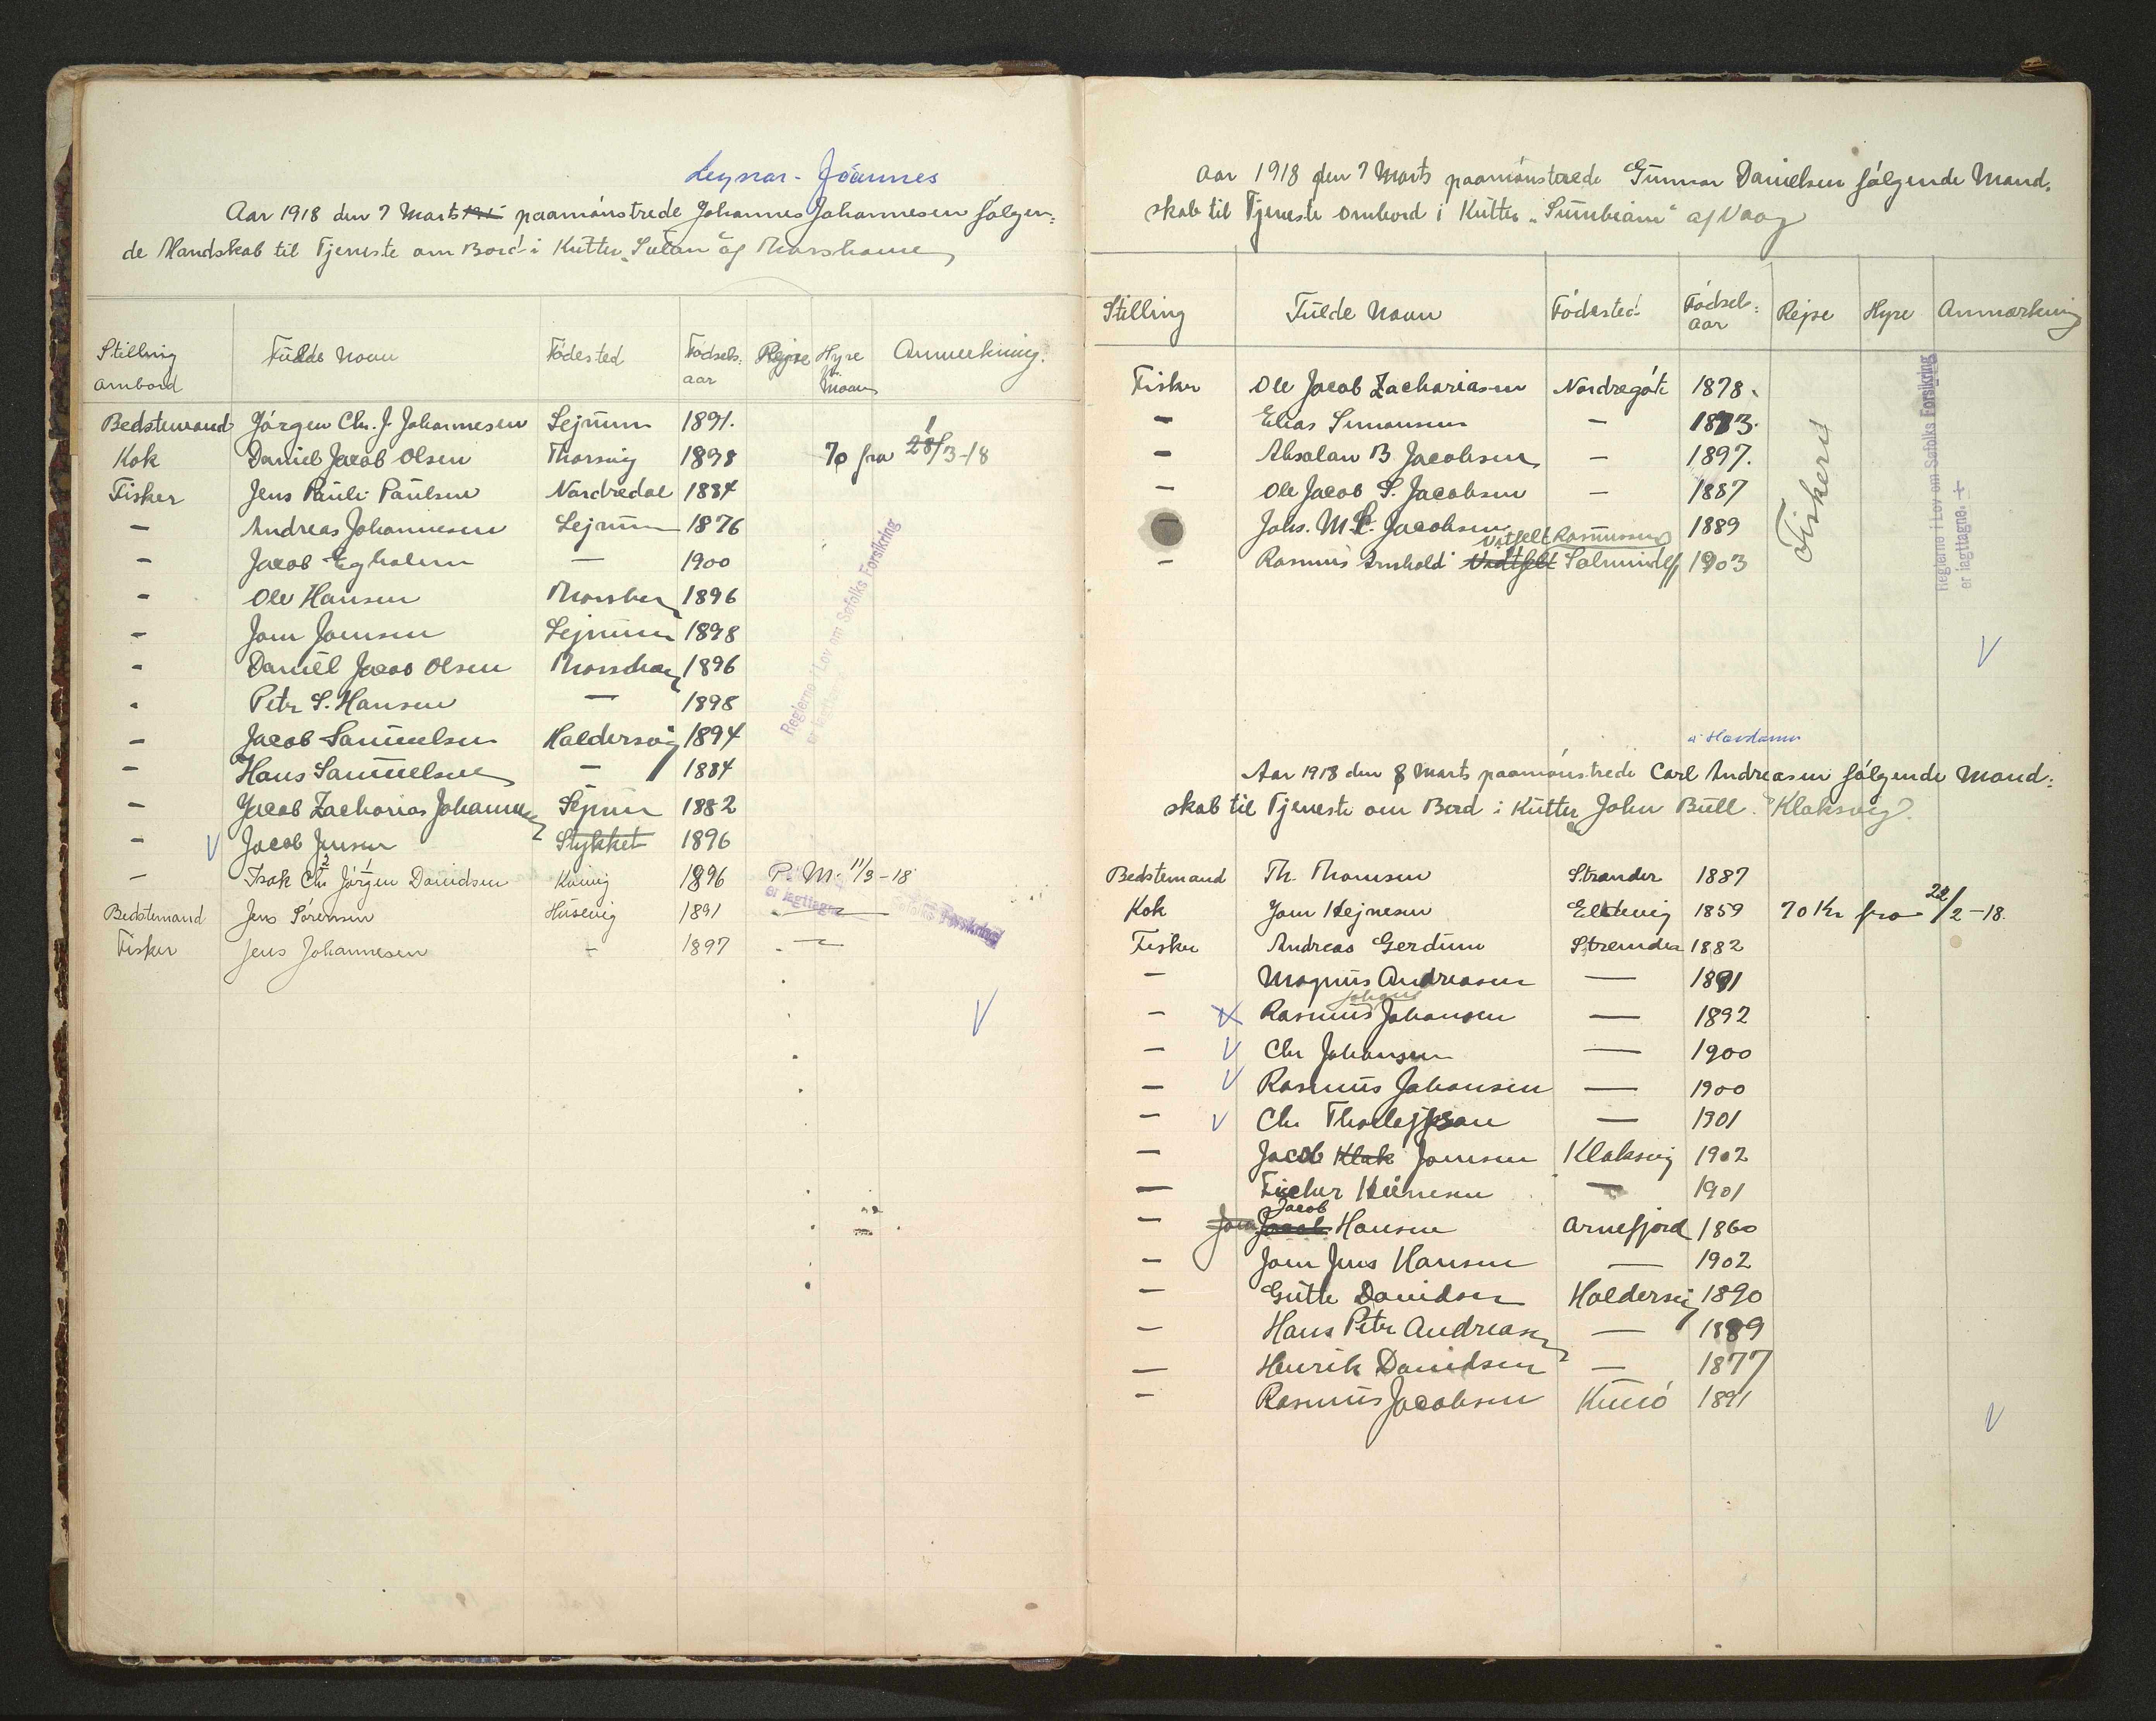 Leynar - Jóannes
Aar 1918 den 7 Marts paamönstrede Johannes Johannesen fölgen=
de Mandskab til Tjeneste om Bord i Kutter "Sulan" af Thorshavn
Stilling ombord Fulde Navn Födested Födsels-aar Rejse Hyre Maan Anmerkning.
Bedstemand Jörgen Chr. J. Johannesen Lejnum 1891.
Kok Daniel Jacob Olsen Thorsvig 1898 70 fra 1/3-18
Fisker Jens Pauli Paulsen Nordredal 1884
— Andreas Johannesen Lejnum 1876
— Jacob Egholm — 1900
— Ole Hansen Thorshavn 1896
— Joen Joensen Lejnum 1898
— Daniel Jacob Olsen Thorshavn 1896
— Petr S. Hansen — 1898
— Jacob Samuelsen Haldersvig 1894
— Hans Samuelsen — 1884
— Jacob Zacharias Johannesen Lejnum 1882
— V Jacob Jensen Stykket 1896
— Isak Chr Jörgen Davidsen Kvivig 1896 P. M. 11/3-18
Bedstemand Jens Sörensen Husevig 1891 —
Fisker Jens Johannesen — 1897 —
Reglerne i Lov om Søfolks Forsikring
er iagttagne
V
Aar 1918 den 7 Marts paamönstrede Gunnar Danielsen fölgende Mand=
skab til Tjeneste ombord i Kutter "Sunbeam" af Vaag
Stilling Fulde Navn Födested Födsels=aar Rejse Hyre Anmærkning
Fisker Ole Jacob Zachariasen Nordregöte 1878.
— Elias Simonsen — 1873.
— Absalon B. Jacobsen — 1897.
— Ole Jacob S. Jacobsen — 1887
— Johs. M. P. Jacobsen — 1889
Vitfelt Rasmussen
— Rasmus Arnhold Vidtfelt Salmundefj 1903
Fiskeri
Reglerne i Lov om Søfolks Forsikring
er iagttagne. +
V
Aar 1918 den 8 Marts paamönstrede Carl Andreasen fölgende Mand=
skab til Tjeneste om Bord i Kutter "John Bull" Klaksvig.
Bedstemand Th. Thomsen Strander 1887
Kok Joen Hejnesen Eldevig 1859 70 Kr fra 22/2-18.
Fisker Andreas Gerdum Strender 1882
— Magnus Andreasen — 1891
Johans
— V Rasmus Johansen — 1892
— V Chr Johansen — 1900
— V Rasmus Johansen — 1900
— V Chr Thorleifsson — 1901
— Jacob Klak Joensen Klaksvig 1902
— Fischer Heinesen — 1901
Jacob
— Joen Jacob Hansen Arnefjord 1860
— Joen Jens Hansen — 1902
— Gutte Davidsen Haldersvig 1890
— Hans Petr Andreasen — 1889
— Henrik Davidsen — 1877
— Rasmus Jacobsen Kunö 1891
V